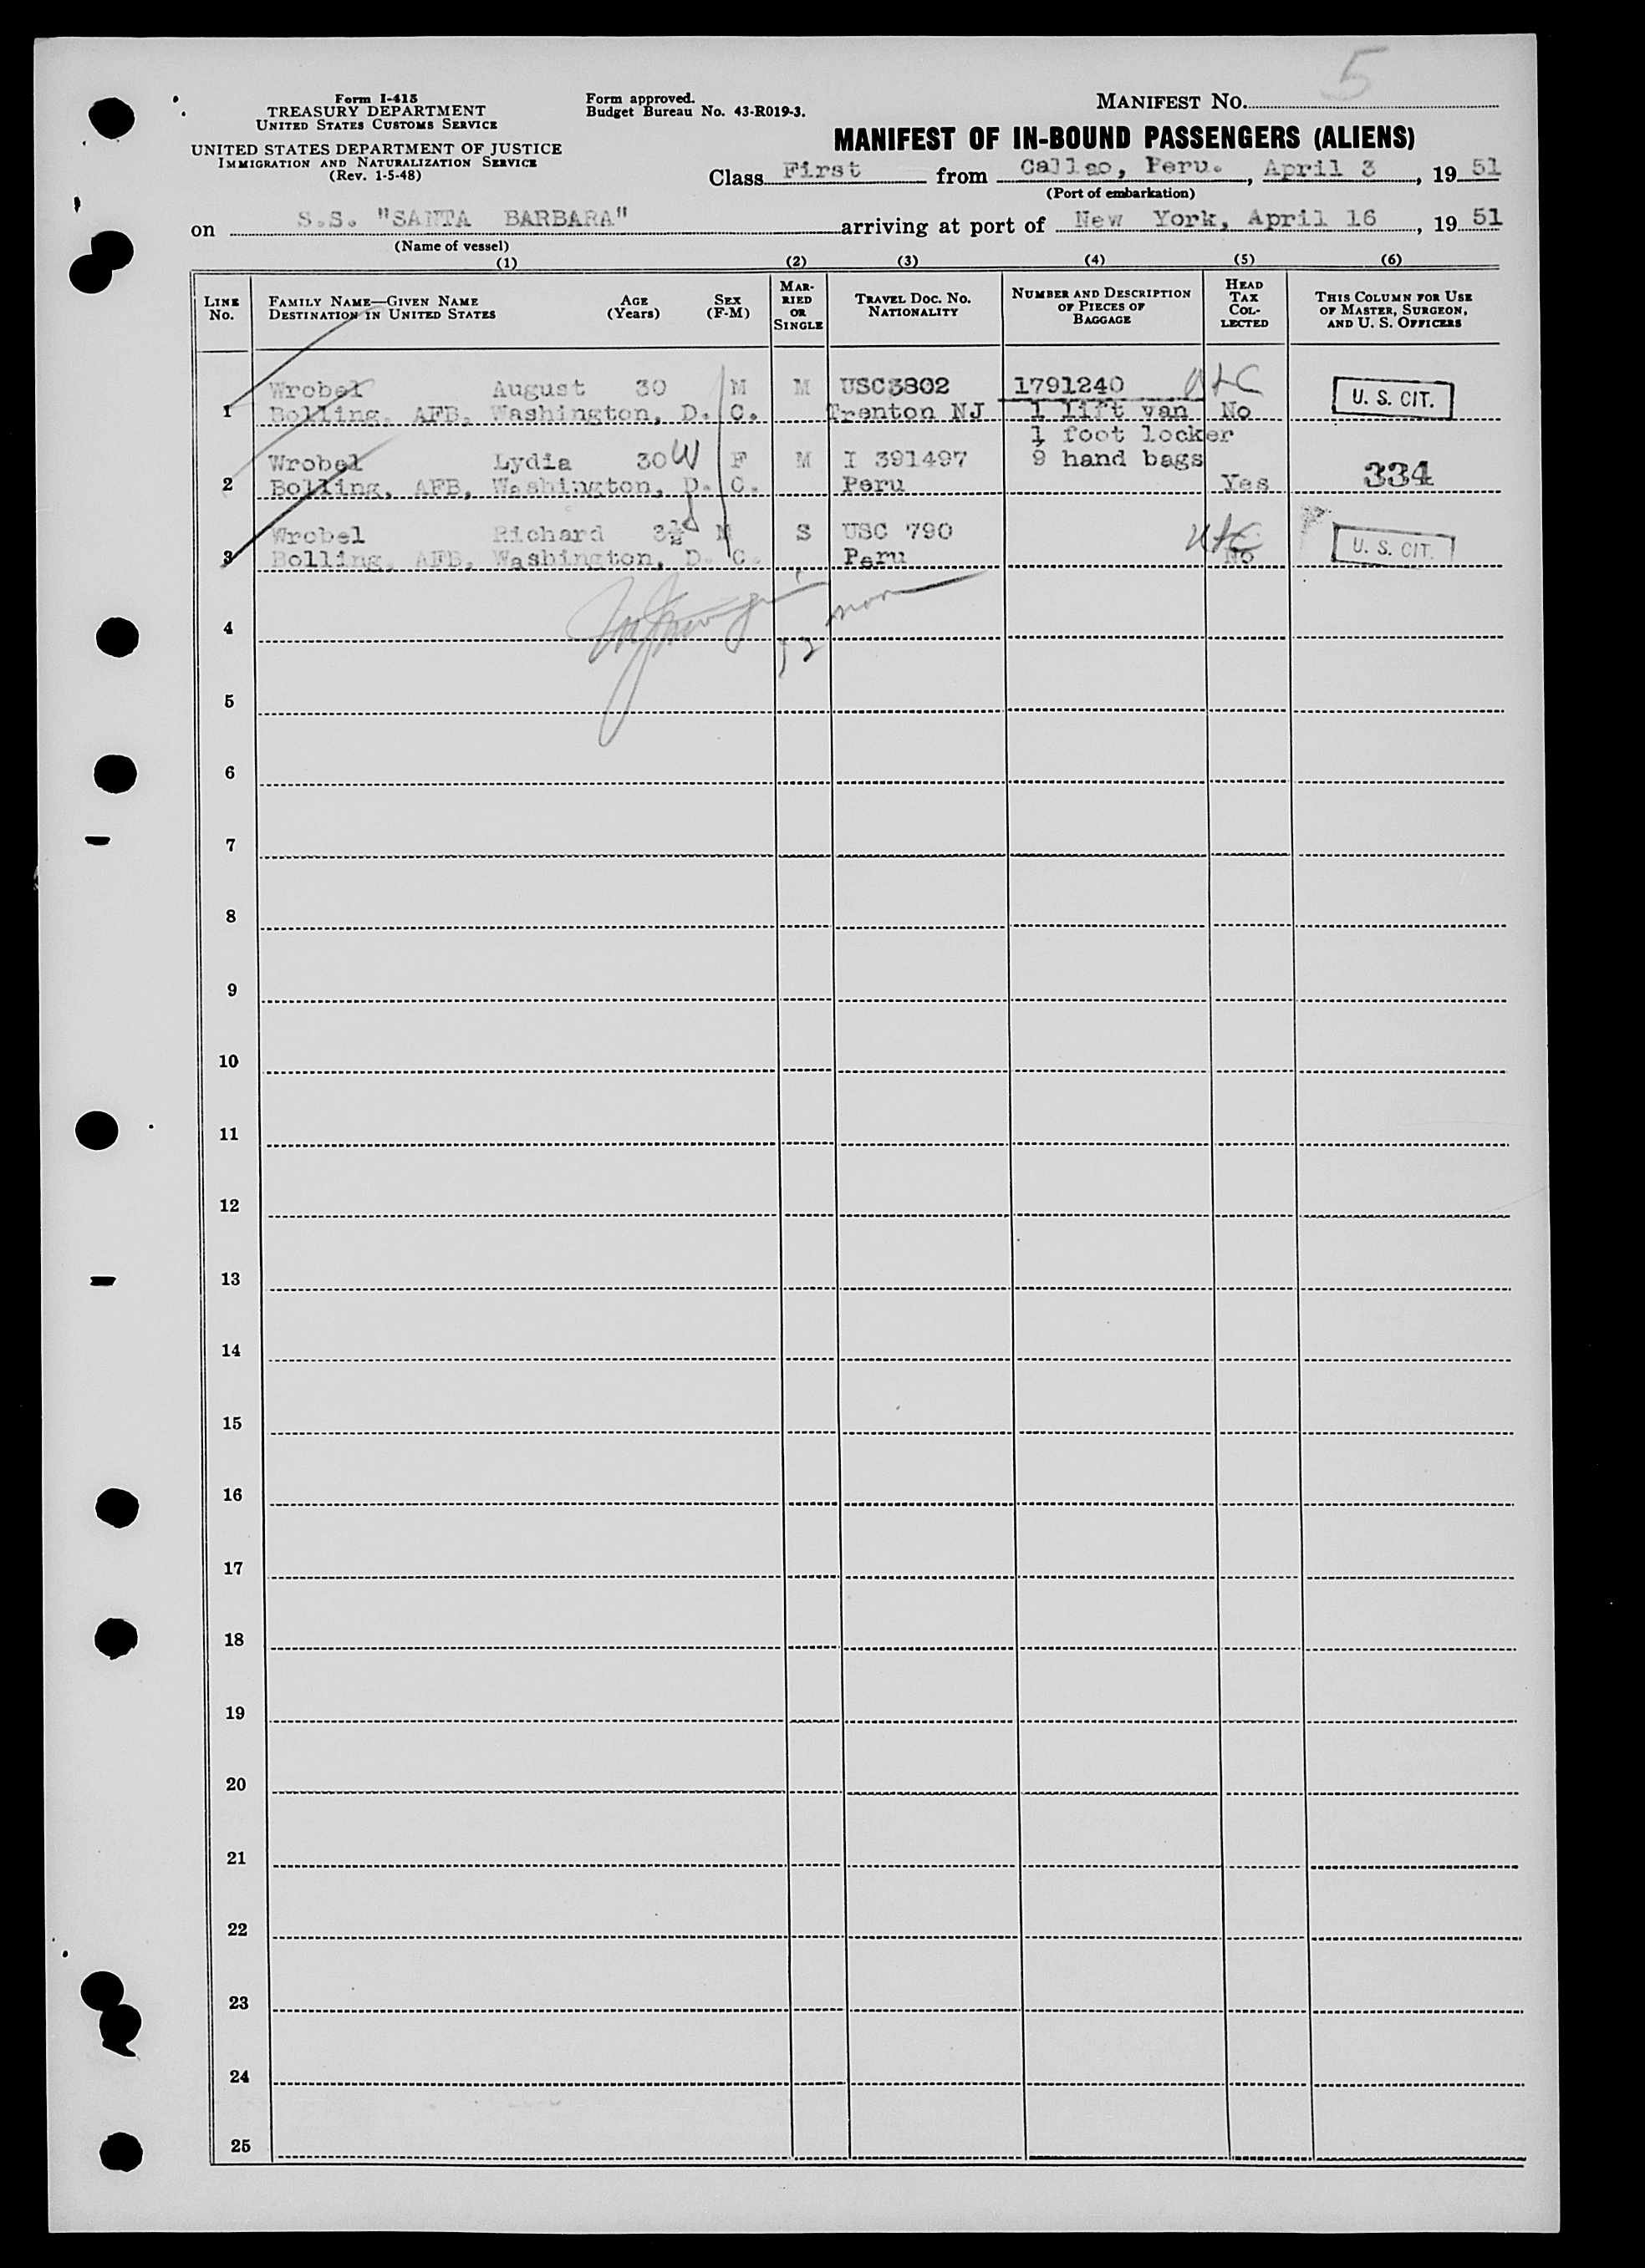 5
Form I-415
TREASURY DEPARTMENT
UNITED STATES CUSTOMS SERVICE
UNITED STATES DEPARTMENT OF JUSTICE
IMMIGRATION AND NATURALIZATION SERVICE
(Rev. 1-5-48)
Form approved.
Budget Bureau No. 43-R019-3.
MANIFEST NO.
MANIFEST OF IN-BOUND PASSENGERS (ALIENS)
Class First from Callao, Peru. , April 3 , 19 51
(Port of embarkation)
on S.S. "SANTA BARBARA" arriving at port of New York, April 16 , 19 51
(Name of vessel)
(1) (2) (3) (4) (5) (6)
LINE NO.
FAMILY NAME—GIVEN NAME
DESTINATION IN UNITED STATES
AGE (Years)
SEX (F-M)
MARRIED OR SINGLE
TRAVEL DOC. NO.
NATIONALITY
NUMBER AND DESCRIPTION OF PIECES OF BAGGAGE
HEAD TAX COLLECTED
THIS COLUMN FOR USE OF MASTER, SURGEON, AND U. S. OFFICERS
Wrobel August 30 M M USC3802 1791240
1 Bolling, AFB, Washington, D. C. Trenton NJ 1 lift van No U. S. CIT.
1 foot locker
Wrobel Lydia 30 W F M I 391497 9 hand bags
2 Bolling, AFB, Washington, D. C. Peru Yes 334
Wrobel Richard 3½ M S USC 790
3 Bolling, AFB, Washington, D. C. Peru No U. S. CIT.
4
5
6
7
8
9
10
11
12
13
14
15
16
17
18
19
20
21
22
23
24
25